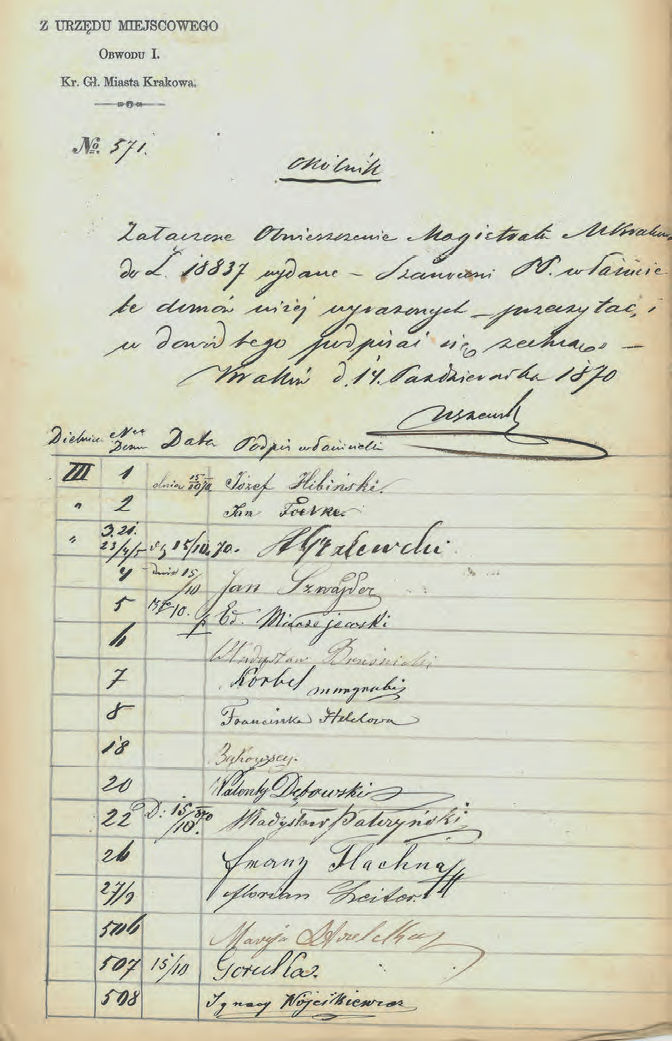 Z URZĘDU MIEJSCOWEGO
OBWODU I.
Kr. Gł. Miasta Krakowa.
No. 571.
Okólnik
Załączone Obwieszczenie Magistratu MKrakowa
do L. 18837 wydane – Szanowni PP. właścicie
le domów niżej wyrażonych – przeczytać, i
w dowód tego podpisać się zechcą –
Kraków d. 14. Października 1870
Dzielnica Nro Domu Data Podpis właścicieli
III 1 dnia 15/10 Józef Hibiński.
" 2 Jan
" 3. 21. 23/4/5 15/10 70.
4 dnia 15/10 Jan Szwajder
5 10. Ed.
6 Władysław
7 Korbel
8 Franciszka Helclowa
18
20 Walenty Dębowski
22 D: 15/10. Władysław
26 Franz Flachna
27/9 Florian
506 Maryja
507 15/10
508 Ignacy Wójcikiewicz